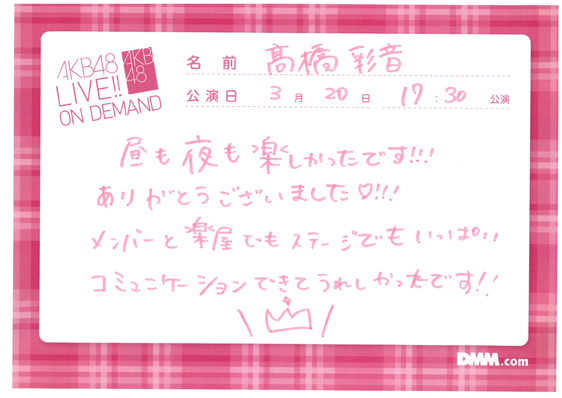 AKB48
LIVE!!
ON DEMAND
AKB
48
名 前 髙橋 彩音
公演日 3 月 20 日 17:30 公演
昼も夜も楽しかったです!!!
ありがとうございました♡!!!
メンバーと楽屋でもステージでもいっぱい!!
コミュニケーションできてうれしかったです!!
DMM.com